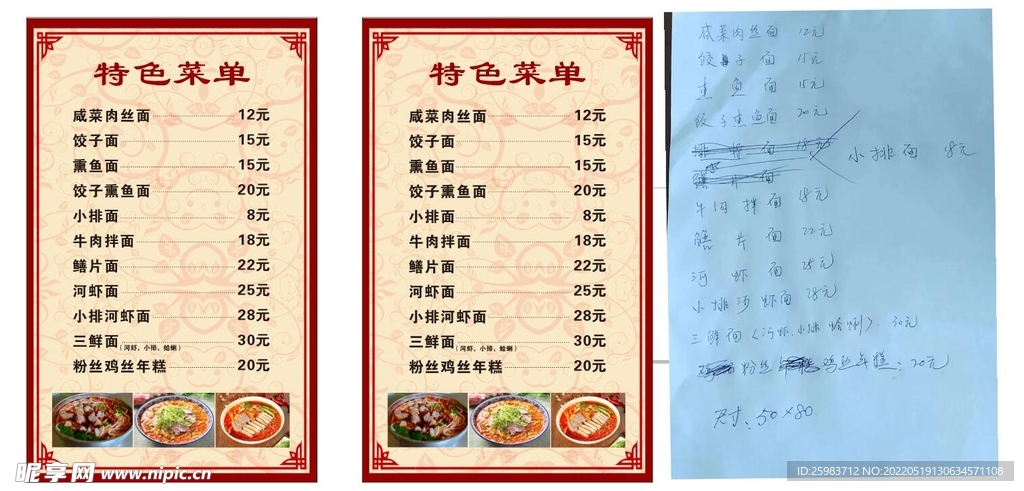 特色菜单
咸菜肉丝面 12元
饺子面 15元
熏鱼面 15元
饺子熏鱼面 20元
小排面 8元
牛肉拌面 18元
鳝片面 22元
河虾面 25元
小排河虾面 28元
三鲜面(河虾、小排、蛤蜊) 30元
粉丝鸡丝年糕 20元
特色菜单
咸菜肉丝面 12元
饺子面 15元
熏鱼面 15元
饺子熏鱼面 20元
小排面 8元
牛肉拌面 18元
鳝片面 22元
河虾面 25元
小排河虾面 28元
三鲜面(河虾、小排、蛤蜊) 30元
粉丝鸡丝年糕 20元
咸菜肉丝面 12元
饺子面 15元
鱼面 15元
饺子鱼面 20元
小排面 18元
牛肉拌面 18元
鳝片面 22元
河虾面 25元
小排河虾面 28元
三鲜面(河虾.小排 蛤蜊). 30元
粉丝 鸡丝年糕: 20元
尺寸: 50×80
昵享网 www.nipic.cn
ID:25983712 NO:20220519130634571108